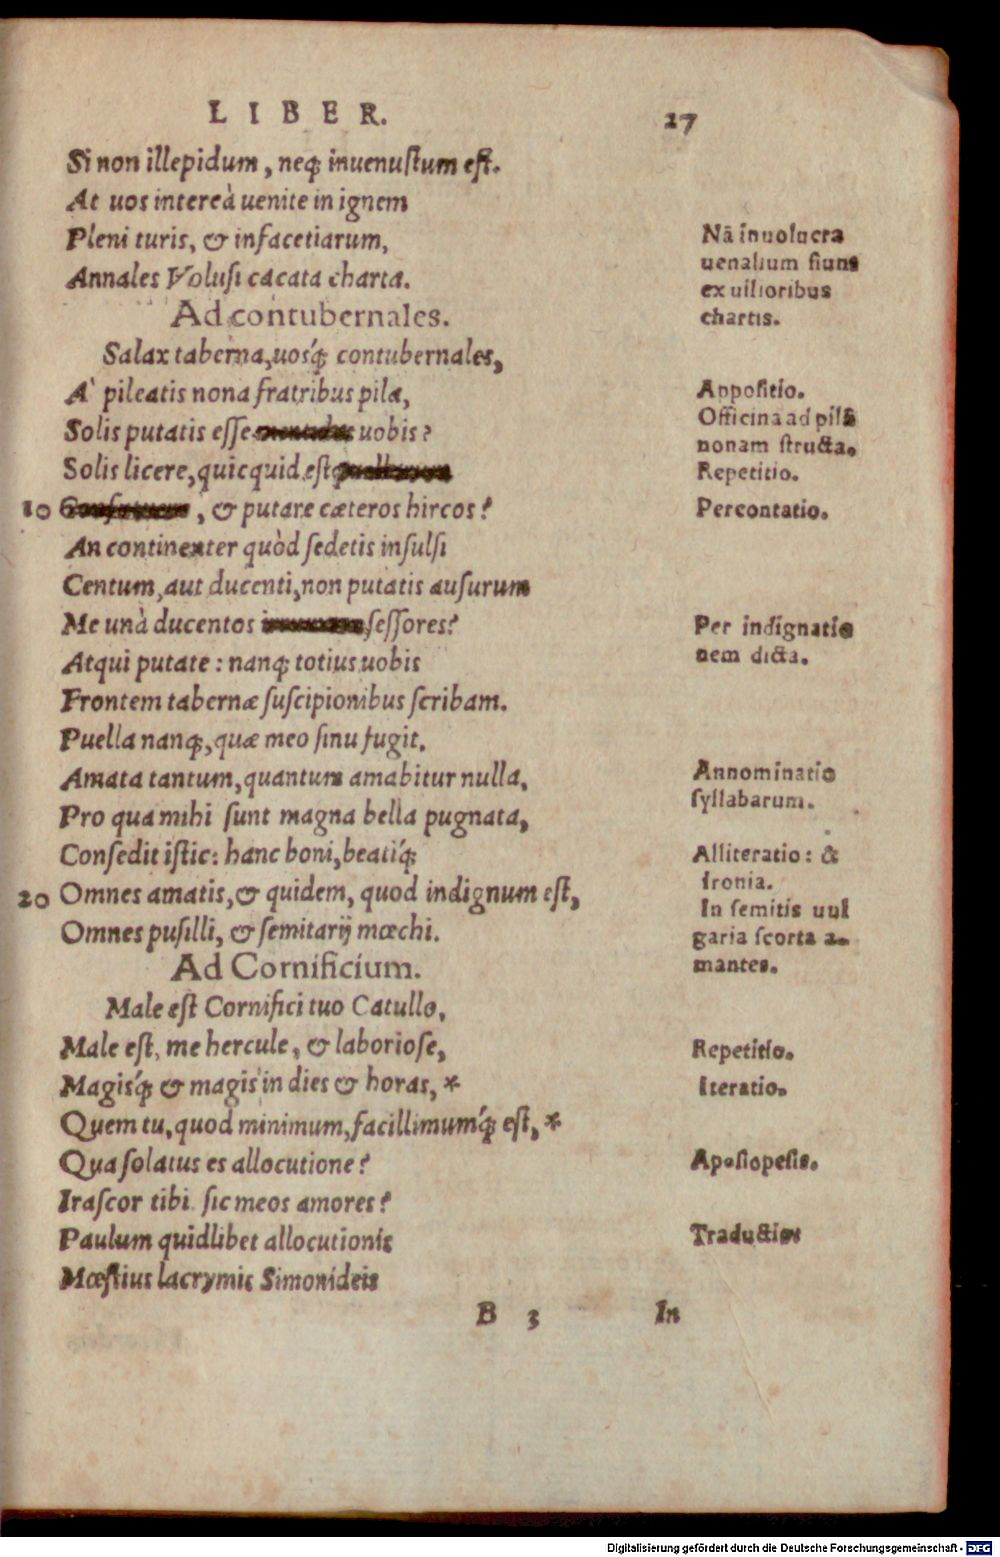 LIBER. 27
Si non illepidum, neq; inuenustum est.
At uos intereà uenite in ignem
Pleni turis, & infacetiarum,
Annales Volusi cacata charta.
Nā inuolucra
uenalium fiunt
ex uilioribus
chartis.
Ad contubernales.
Salax taberna, uosq́; contubernales,
A' pileatis nona fratribus pila,
Appositio.
Solis putatis esse uobis?
Officina ad pilā
nonam structa.
Solis licere, quicquid est
Repetitio.
10 , & putare cæteros hircos?
Percontatio.
An continenter quòd sedetis insulsi
Centum, aut ducenti, non putatis ausurum
Me unà ducentos sessores?
Per indignatio
nem dicta.
Atqui putate: nanq; totius uobis
Frontem tabernæ suscipionibus scribam.
Puella nanq;, quæ meo sinu fugit.
Amata tantum, quantum amabitur nulla,
Annominatio
syllabarum.
Pro qua mihi sunt magna bella pugnata,
Consedit istic: hanc boni, beatiq́;
Alliteratio: &
ironia.
20 Omnes amatis, & quidem, quod indignum est,
Omnes pusilli, & semitarij mœchi.
In semitis uul
garia scorta a-
mantes.
Ad Cornificium.
Male est Cornifici tuo Catullo,
Male est, me hercule, & laboriose,
Repetitio.
Magisq́; & magis in dies & horas, *
Iteratio.
Quem tu, quod minimum, facillimumq́; est, *
Qua solatus es allocutione?
Aposiopesis.
Irascor tibi. sic meos amores?
Paulum quidlibet allocutionis
Traductio
Mœstius lacrymis Simonideis
B 3 In
Digitalisierung gefördert durch die Deutsche Forschungsgemeinschaft - DFG